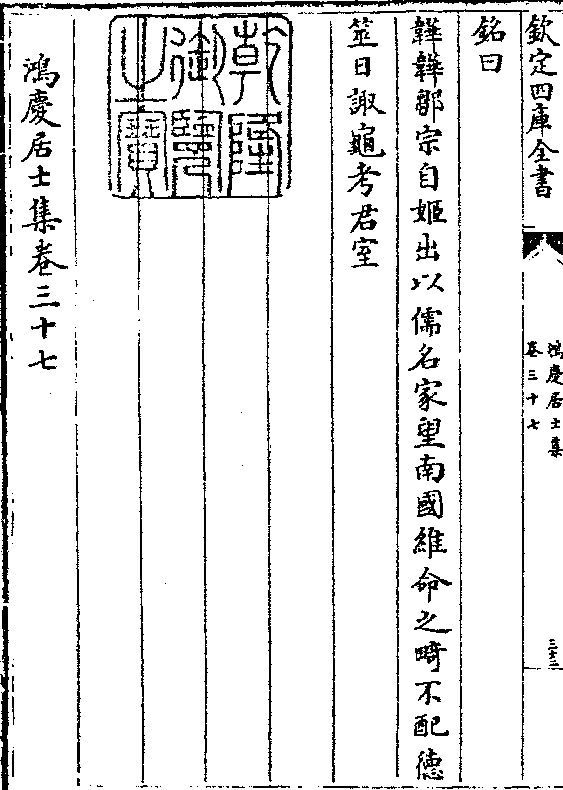 欽定四庫全書
鴻慶居士集
卷三十七
三十三
銘曰
韡韡鄒宗自姬出以儒名家望南國維命之畸不配德
筮日諏龜考君室
乾隆御覽之寶
鴻慶居士集卷三十七